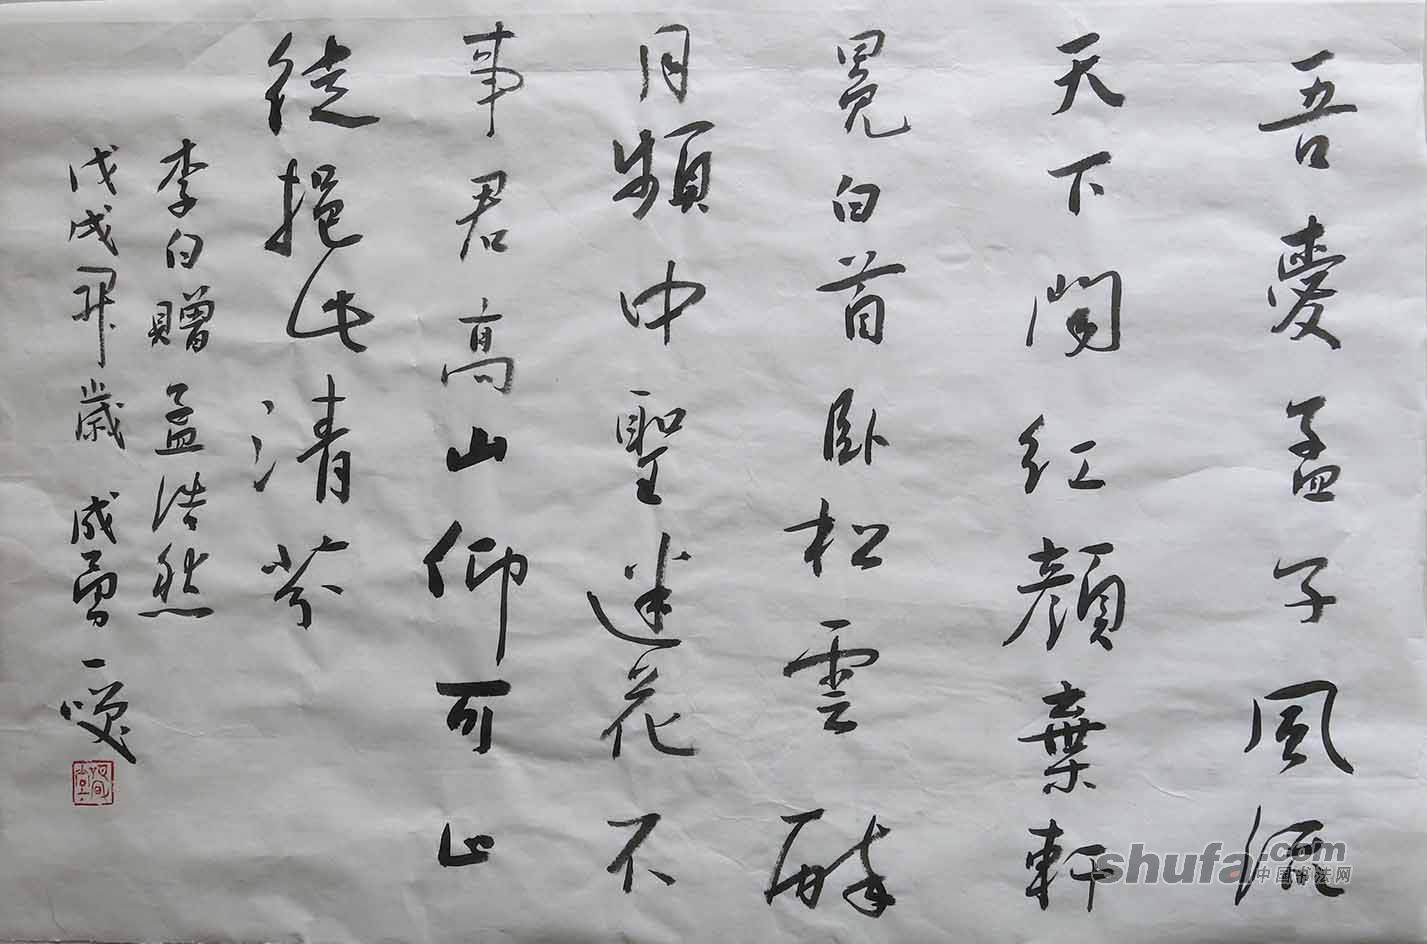 吾愛孟子風流
天下聞紅顏棄軒
冕白首臥松雲醉
月頻中聖迷花不
事君高山仰可止
徒挹此清芬
李白贈孟浩然
戊戌歲 成勇一
shufa.com
中国书法网